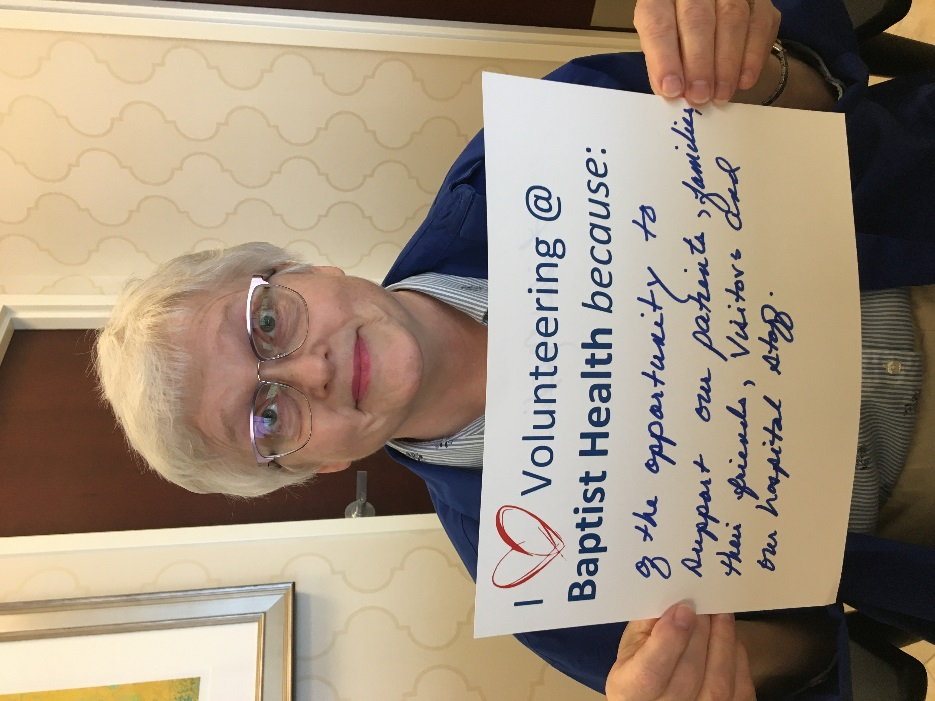 I Volunteering @
Baptist Health because:
of the opportunity to
support our patients, families,
their friends, visitors and
our hospital staff.